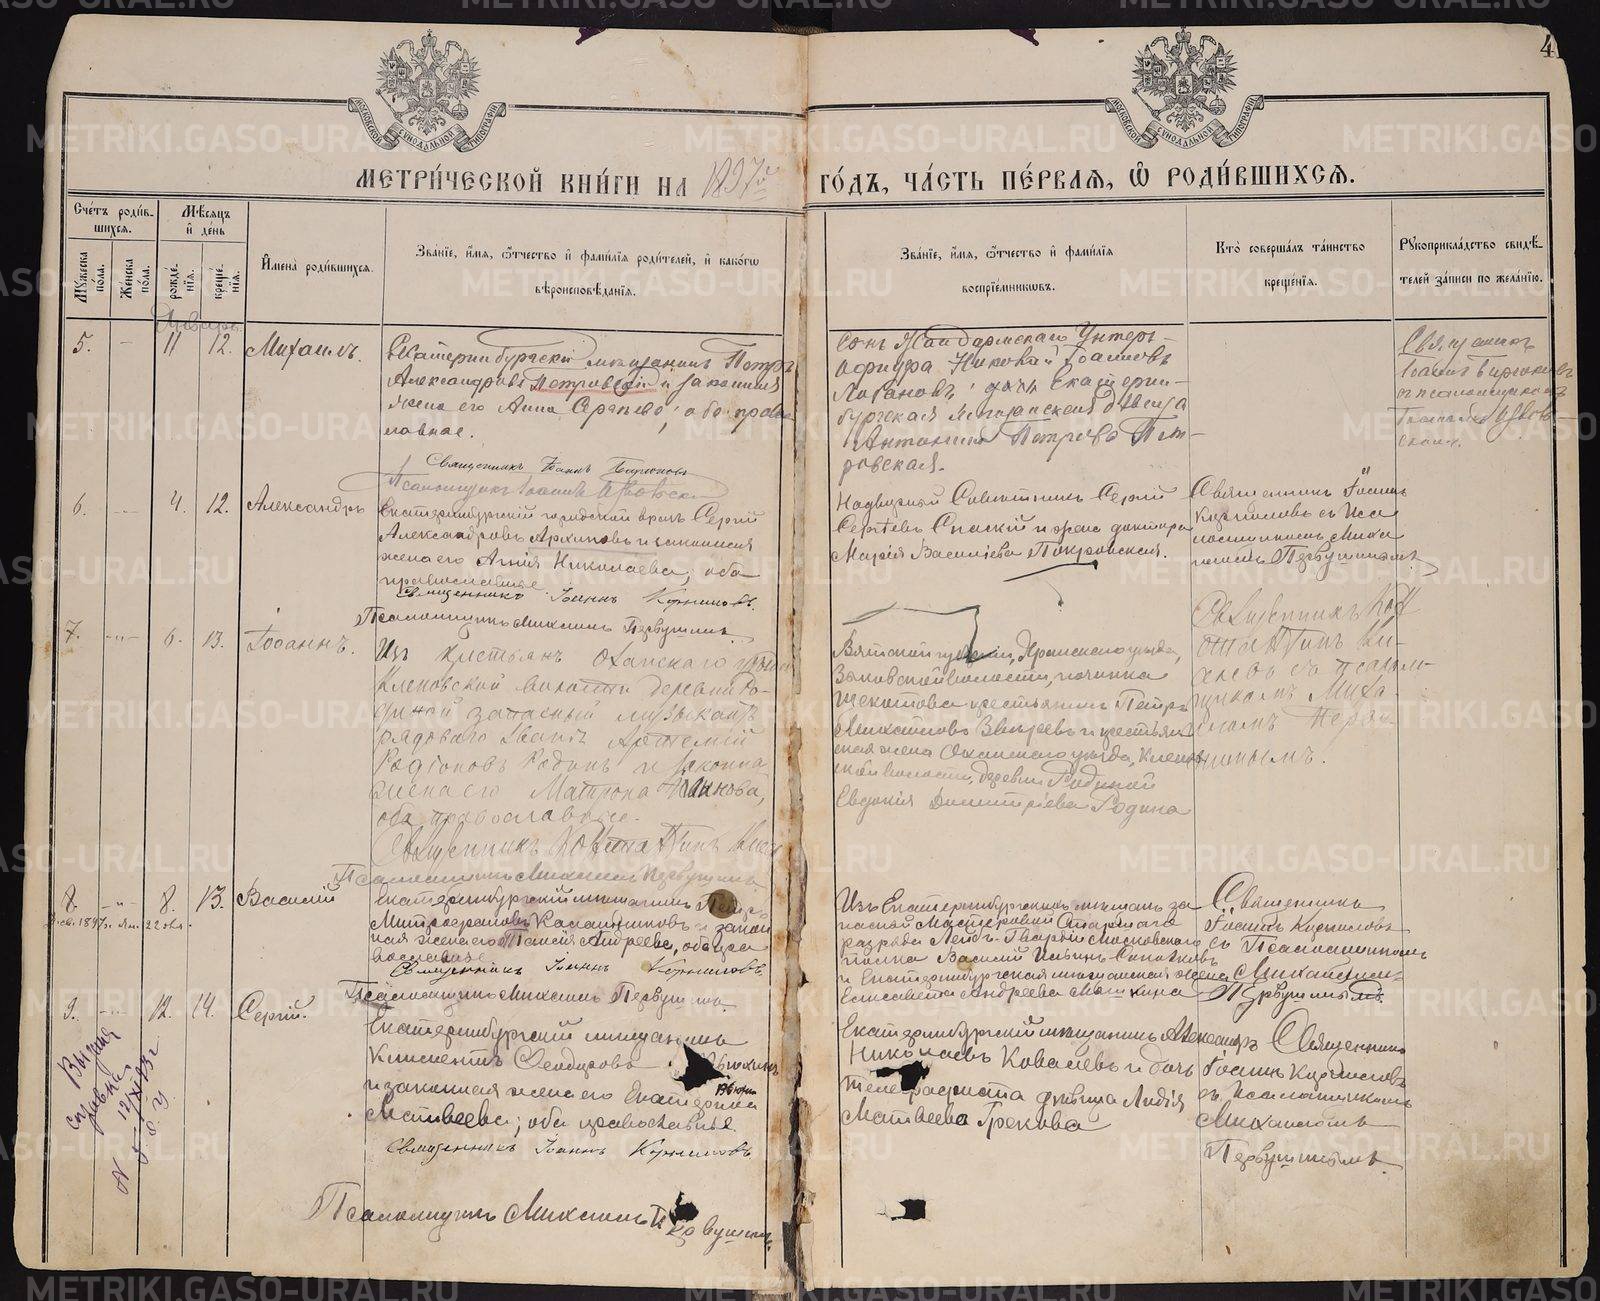 4
МЕТРИ́ЧЕСКОЙ КНИ́ГИ НА 1897й ГО́ДЪ, ЧА́СТЬ ПЕ́РВАЯ, Ѡ РОДИ́ВШИХСЯ.
Сче́тъ роди́в-
шихся.
Мѣ́сяцъ
и́ де́нь
Му́жеска по́ла.
Же́нска по́ла.
рожде́-
нія.
креще́-
нія.
И҆мена̀ роди́вшихся.
Зва́ніе, и҆́мя, ѻ҆́тчество и҆ фами́лія роди́телей, и҆ како́гѡ
вѣроисповѣ́данія.
Зва́ніе, и҆́мя, ѻ҆́тчество и҆ фами́лія
воспріе́мникѡвъ.
Кто̀ соверша́лъ та́инство
креще́нія.
Рꙋкоприкла́дство свидѣ́-
телей за́писи по жела́нію.
Январь
5. - 11 12. Михаилъ.
Екатеринбургскій мѣщанинъ Петръ
Александровъ Петровскій и законная
жена его Анна Сергѣева; оба право
славные.
Священникъ Іоаннъ Бирюковъ
Псаломщикъ Іоаннъ
Сынъ Жандармскаго Унтеръ-
офицера Николай Іоанновъ
Логановъ; дочь Екатерин-
бургская мѣщанская дѣвица
Антонина Петрова Пет-
ровская.
Священникъ
Іоаннъ Бирюковъ
съ псаломщикомъ
6. - 4. 12. Александръ
Екатеринбургскій городской врачъ Сергій
Александровъ Архиповъ и законная
жена его Агнія Николаева; оба
православные
Священникъ Іоаннъ Корниловъ.
Псаломщикъ Михаилъ Первушинъ.
Надворный Совѣтникъ Сергій
Сергѣевъ Спаскій и жена доктора
Марія Василіева Покровская.
Священникъ Іоаннъ
Корниловъ съ Пса
ломщикомъ Миха
иломъ Первушинымъ.
7. -"- 6. 13. Іоаннъ.
Изъ крестьянъ Оханскаго уѣзда
Кленовской волости деревни Ро-
диной запасный музыкантъ
рядоваго званія Артемій
Родіоновъ Родинъ и законная
жена его Матрона Иванова,
оба православные.
Священникъ Константинъ
Псаломщикъ Михаилъ Первушинъ
Вятской губерніи, уѣзда,
волости, починка
крестьянинъ Петръ
Михаиловъ Звѣревъ и крестьян
ская жена Оханскаго уѣзда, Кленов
ской волости, деревни Родиной
Евдокія Димитріева Родина
Священникъ Кон
стантинъ
съ псалом-
щикомъ Миха
иломъ Перву
шинымъ.
8. -"- 8. 13. Василій
Екатеринбургскій мѣщанинъ Петръ
Митрофановъ Калашниковъ и закон
ная жена его Таисія Андреева, оба пра
вославные
Священникъ Іоаннъ Корниловъ.
Псаломщикъ Михаилъ Первушинъ.
Изъ Екатеринбургскихъ мѣщанъ за
пасной Мастеровой Старшаго
разряда Лейбъ-Гвардіи Московскаго
полка Василій Ильинъ
и Екатеринбургская мѣщанская жена
Елисавета Андреева Машкина
Священникъ
Іоаннъ Корниловъ
съ Псаломщикомъ
Михаиломъ
Первушинымъ.
9. -"- 12. 14. Сергій.
Екатеринбургскій мѣщанинъ
Климентъ Ѳеодоровъ
и законная жена его Екатерина
Матвѣева; оба православные.
Священникъ Іоаннъ Корниловъ.
Псаломщикъ Михаилъ Первушинъ.
Екатеринбургскій мѣщанинъ Александръ
Николаевъ Ковалевъ и дочь
телеграфиста дѣвица Лидія
Матвѣева Грекова
Священникъ
Іоаннъ Корниловъ
съ Псаломщикомъ
Михаиломъ
Первушинымъ.
Выдана
справка
METRIKI.GASO-URAL.RU